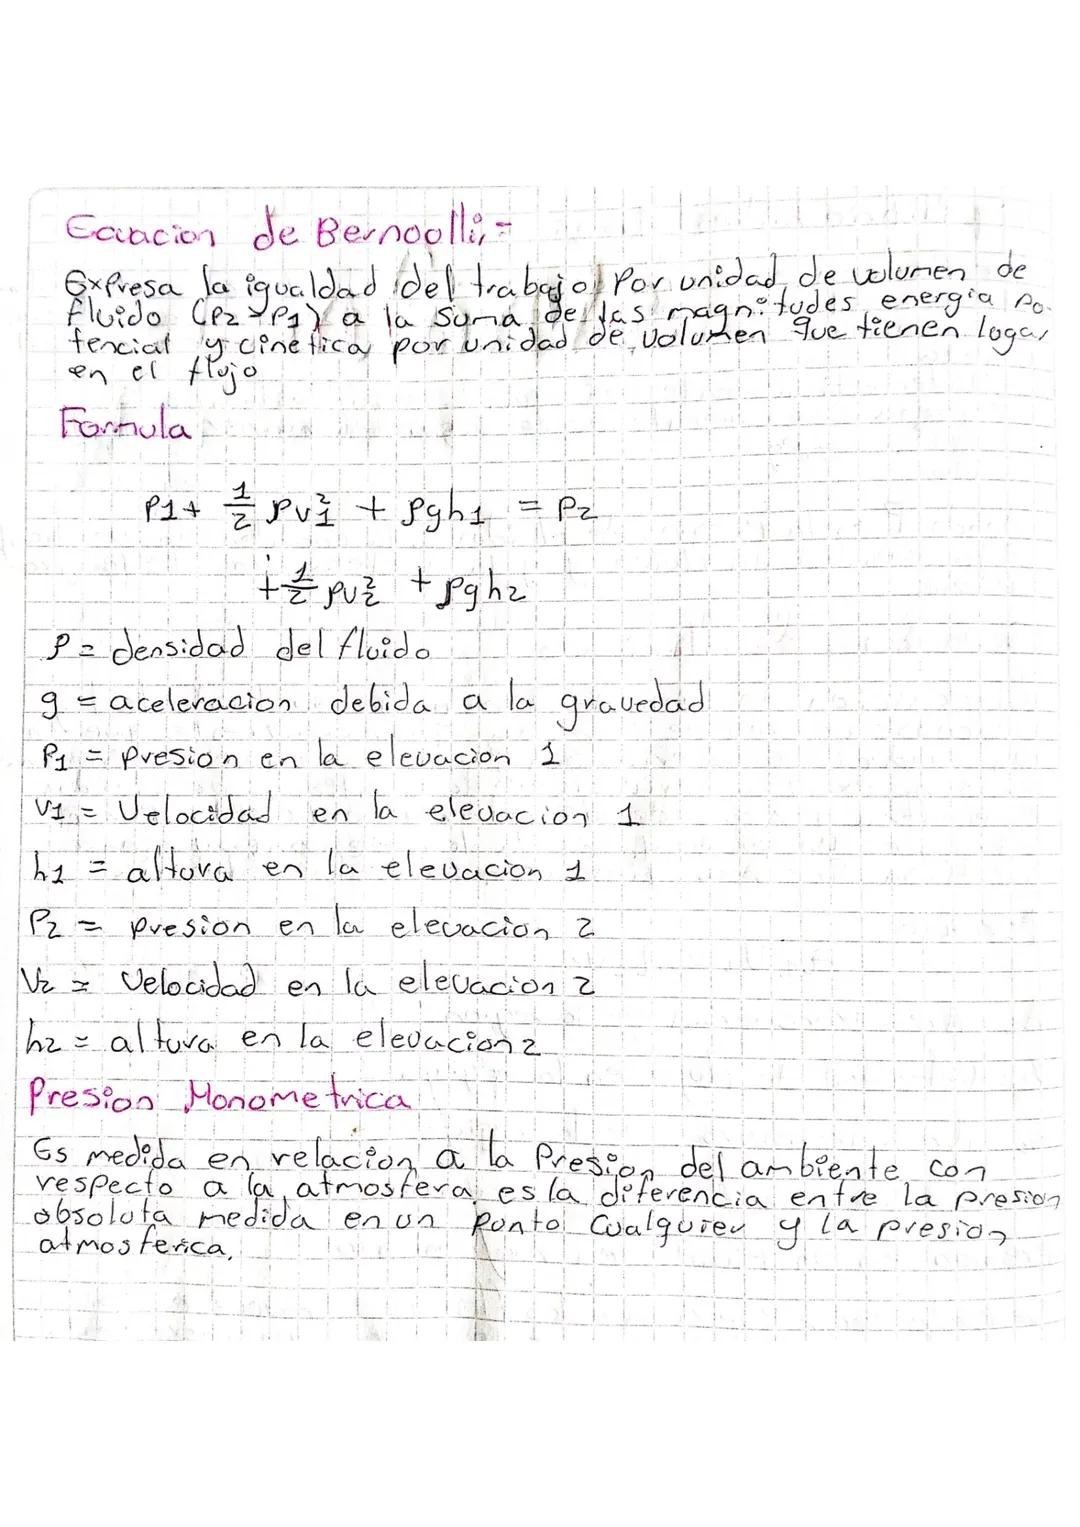 Ecuacion de Bernoolli,-
Expresa la igualdad del trabajo por unidad de volumen de
fluido (P2 y P1) a la suma de las magnitudes energia po-
tencial y cinetica por unidad de volumen que tienen lugar
en el flujo
Formula
P1+ 1/2 ρv₁² + ρgh1 = P2
+ 1/2 ρv₂² + ρgh2
ρ = densidad del fluido
g = aceleracion debida a la gravedad
P1 = presion en la elevacion 1
V1 = Velocidad en la elevacion 1
h1 = altura en la elevacion 1
P2 = presion en la elevacion 2
V2 = Velocidad en la elevacion 2
h2 = altura en la elevacion 2
Presion Monometrica
Es medida en relacion a la Presion del ambiente con
respecto a la atmosfera es la diferencia entre la presion
absoluta medida en un punto cualquier y la presion
atmosferica.